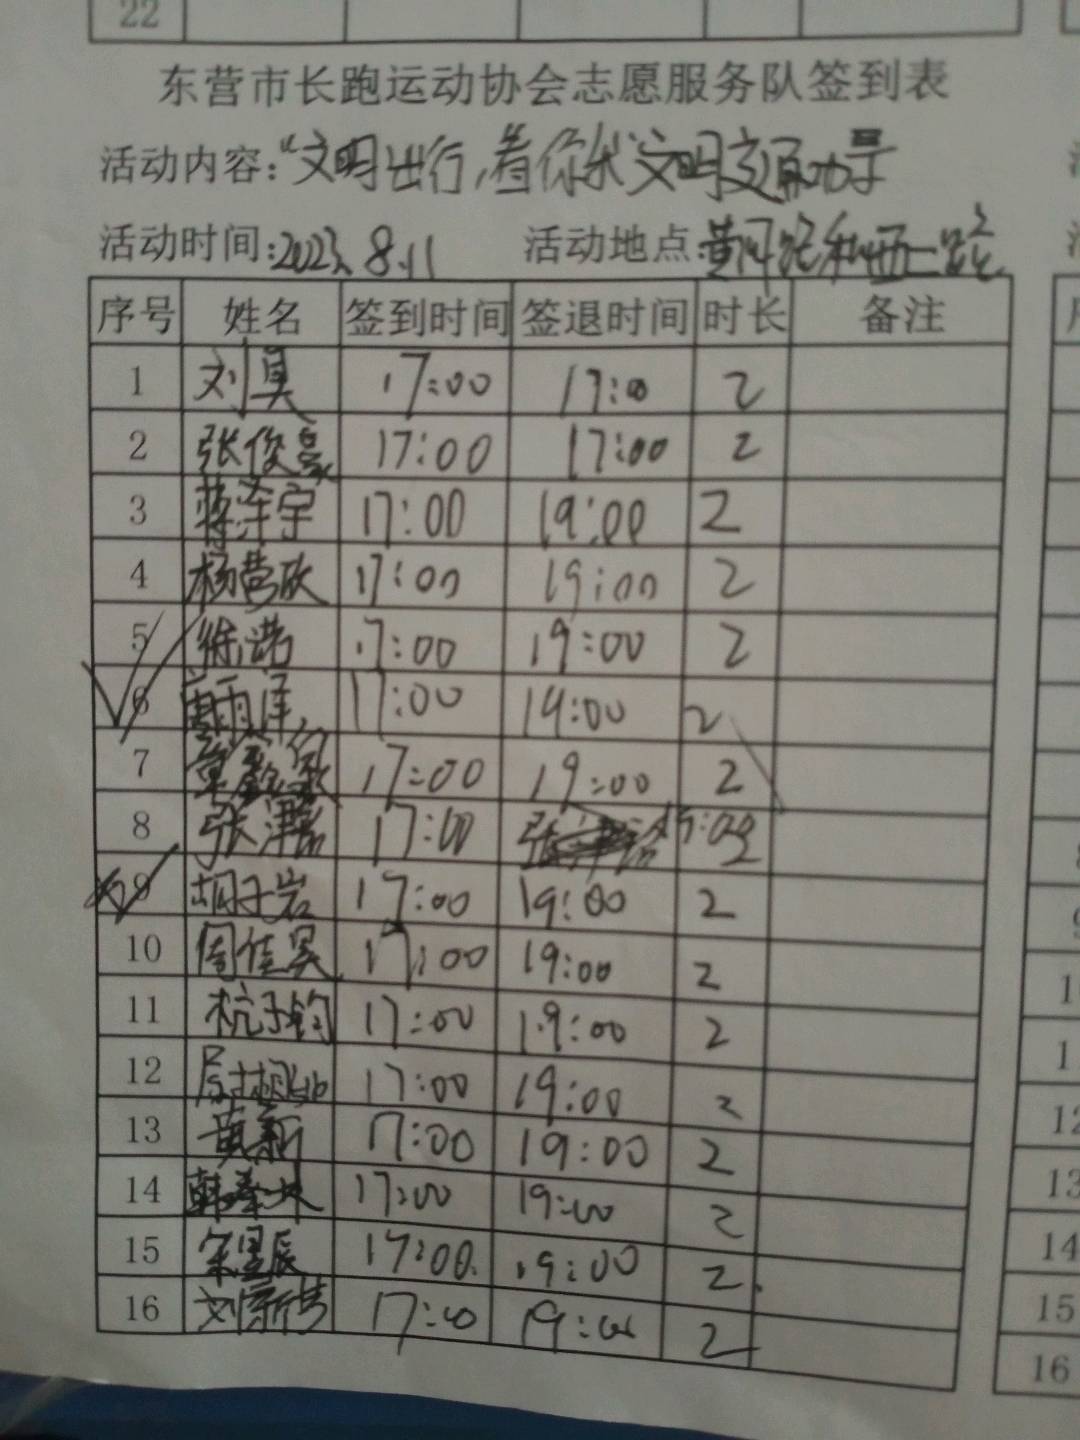 22
东营市长跑运动协会志愿服务队签到表
活动内容:"文明出行,着你我"文明交通
活动时间:2023.8.11 活动地点:黄河路和西二路
序号 姓名 签到时间 签退时间 时长 备注
1 刘昊 17:00 17:00 2
2 张俊豪 17:00 17:00 2
3 蒋泽宇 17:00 19:00 2
4 杨营欣 17:00 19:00 2
5 徐诺 17:00 19:00 2
6 17:00 19:00 2
7 17:00 19:00 2
8 张津 17:00
9 胡子岩 17:00 19:00 2
10 周佳昊 17:00 19:00 2
11 杭子钧 17:00 19:00 2
12 17:00 19:00 2
13 黄新 17:00 19:00 2
14 韩 17:00 19:00 2
15 宋星辰 17:00 19:00 2
16 刘 17:00 19:00 2
13
14
15
16